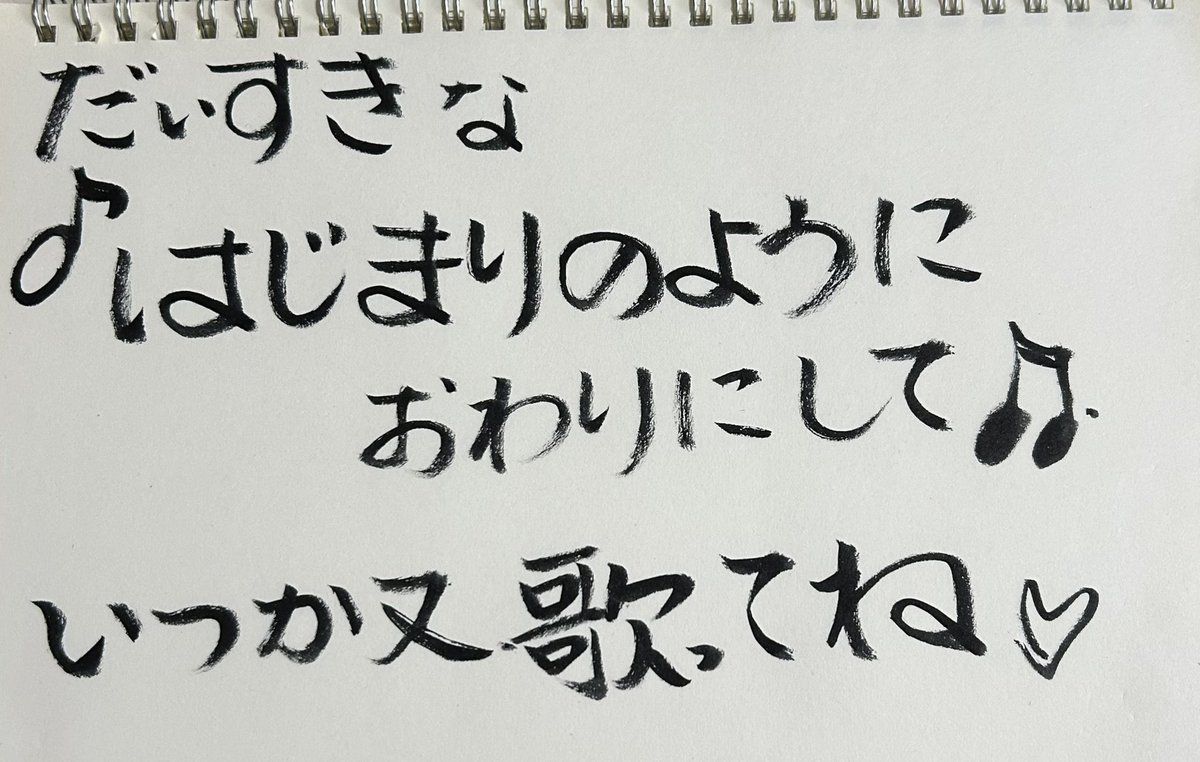 だいすきな
♪はじまりのように
おわりにして♫
いつか又歌ってね♡